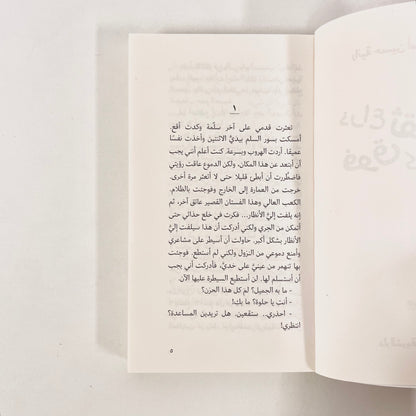 ١
تعثرت قدمي على آخر سلّمة وكدت أقع.
أمسكت بسور السلم بيديَّ الاثنتين وأخذت نفسًا
عميقا. أردت الهروب وبسرعة. كنت أعلم أنني يجب
أن أبتعد عن هذا المكان، ولكن الدموع عاقت رؤيتي
فاضطررت أن أبطئ قليلا حتى لا أتعثر مرة أخرى.
خرجت من العمارة إلى الخارج وفوجئت بالظلام.
الكعب العالي وهذا الفستان القصير عائق آخر، ثم
إنه يلفت إليَّ الأنظار... فكرت في خلع حذائي حتى
أتمكن من الجري ولكني أدركت أن هذا سيلفت إليَّ
الأنظار بشكل أكبر. حاولت أن أسيطر على مشاعري
وأمنع دموعي من النزول ولكني لم أستطع. فوجئت
بها تنهمر من عينيَّ على خديَّ، فأدركت أني يجب
أن أستسلم لها. لن أستطيع السيطرة عليها الآن.
- ما به الجميل؟ لم كل هذا الحزن؟
- أنتِ يا حلوة؟ ما بكِ!
- احذري.. ستقعين. هل تريدين المساعدة؟
انتظري!
٥